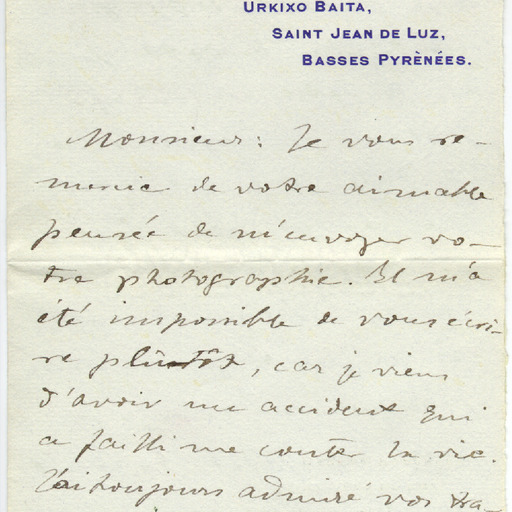 URKIXO BAITA,
SAINT JEAN DE LUZ,
BASSES PYRÈNÉES.
Monsieur: Je vous re-
mercie de votre aimable
pensée de m'envoyer vo-
tre photographie. Il m'a
été impossible de vous écri-
re plûtôt, car je viens
d'avoir un accident qui
a failli me couter la vie.
J'ai toujours admiré vos tra-